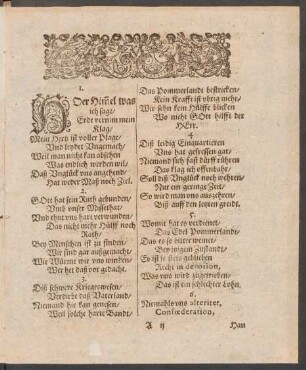 1.
O Der Himel was
ich sage/
Erde vernim mein
Klag/
Mein Hertz ist voller Plage/
Und leydet Ungemach/
Weil man nicht kan absehen
Was endlich werden wil/
Daß Unglück uns angehend/
Hat weder Maß noch Ziel.
2.
GOtt hat sein Ruth gebunden/
Umb unser Missethat/
Und thut uns hart verwunden/
Das nicht mehr Hülff noch
Rath/
Bey Menschen ist zu finden/
Wir sind gar außgemacht/
Wie Würme wir uns winden/
Wer het daß vor gedacht.
3.
Diß schwere Kriegeswesen/
Verderbt daß Vaterland/
Niemand hie kan genesen/
Weil solche harte Bandt/
Das Pommerlandt bestricken/
Kein Krafft ist übrig mehr/
Wir sehn kein Hülffe blicken
Wo nicht GOtt hilfft der
HErr.
4.
Diß leidig Einquartieren
Uns hat gefressen gar/
Niemand sich fast dürff rühren
Das klag ich offenbahr/
Soll diß Unglück noch wehren/
Nur ein geringe Zeit/
So wird man uns außzehren/
Biß auff den letzten
5.
Womit hat es verdienet/
Das Edel Pommerland/
Das es so bitter weinet/
Bey itzigem Zustand/
Es ist ja stets geblieben
Recht in devotion,
Was uns wird zugetrieben/
Das ist ein schlechter Lohn.
6.
Niemahls uns alteriret,
Confœderation,
A ij
Hau